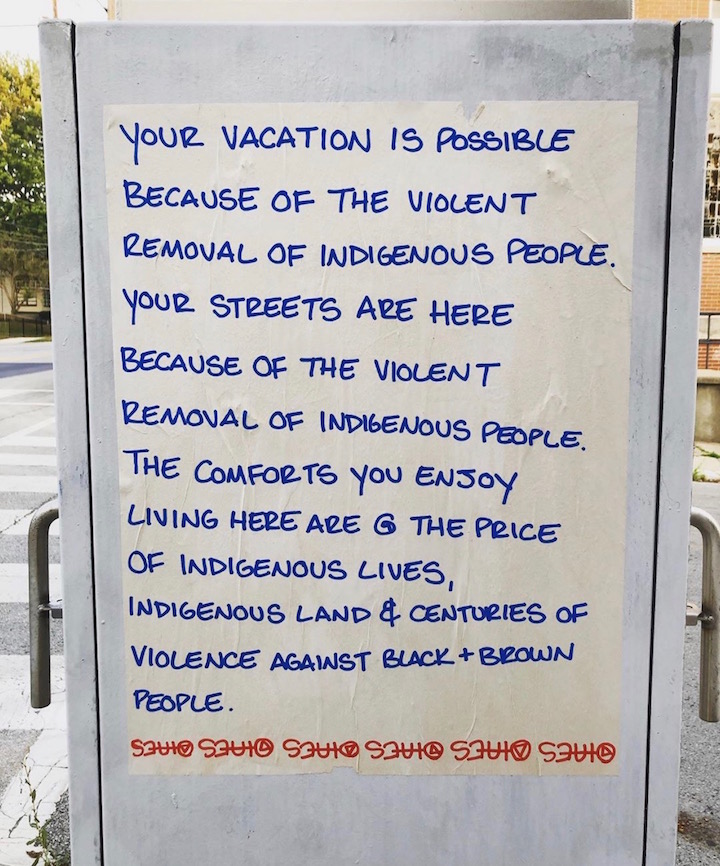 YOUR VACATION IS POSSIBLE
BECAUSE OF THE VIOLENT
REMOVAL OF INDIGENOUS PEOPLE.
YOUR STREETS ARE HERE
BECAUSE OF THE VIOLENT
REMOVAL OF INDIGENOUS PEOPLE.
THE COMFORTS YOU ENJOY
LIVING HERE ARE @ THE PRICE
OF INDIGENOUS LIVES,
INDIGENOUS LAND & CENTURIES OF
VIOLENCE AGAINST BLACK + BROWN
PEOPLE.